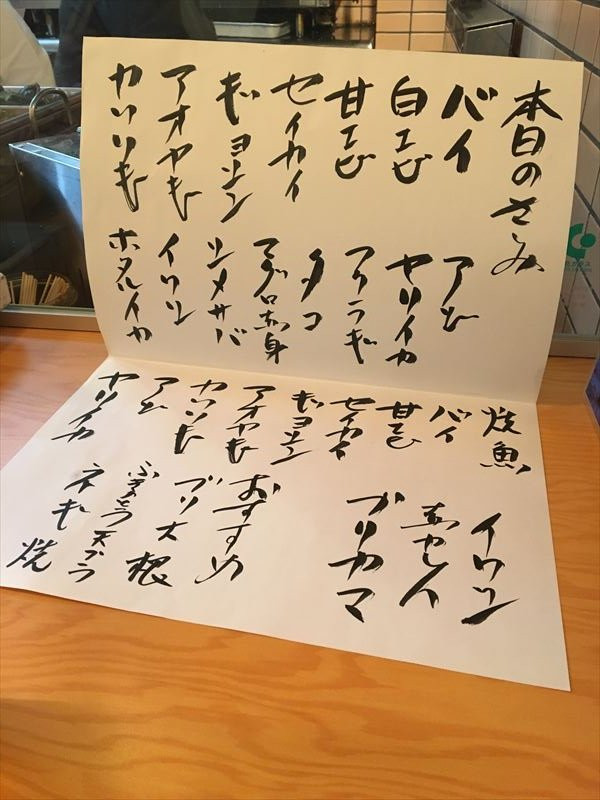 本日のさしみ
バイ
白エビ
甘エビ
セイカイ
アオヤギ
カワハギ
アジ
ヤリイカ
タイラギ
タコ
マグロ赤身
シメサバ
イワシ
ホタルイカ
焼魚
バイ
甘エビ
セイカイ
アオヤギ
カワハギ
アジ
ヤリイカ
イワシ
赤カレイ
ブリカマ
おすすめ
ブリ大根
ふきのとう天プラ
ネギ焼